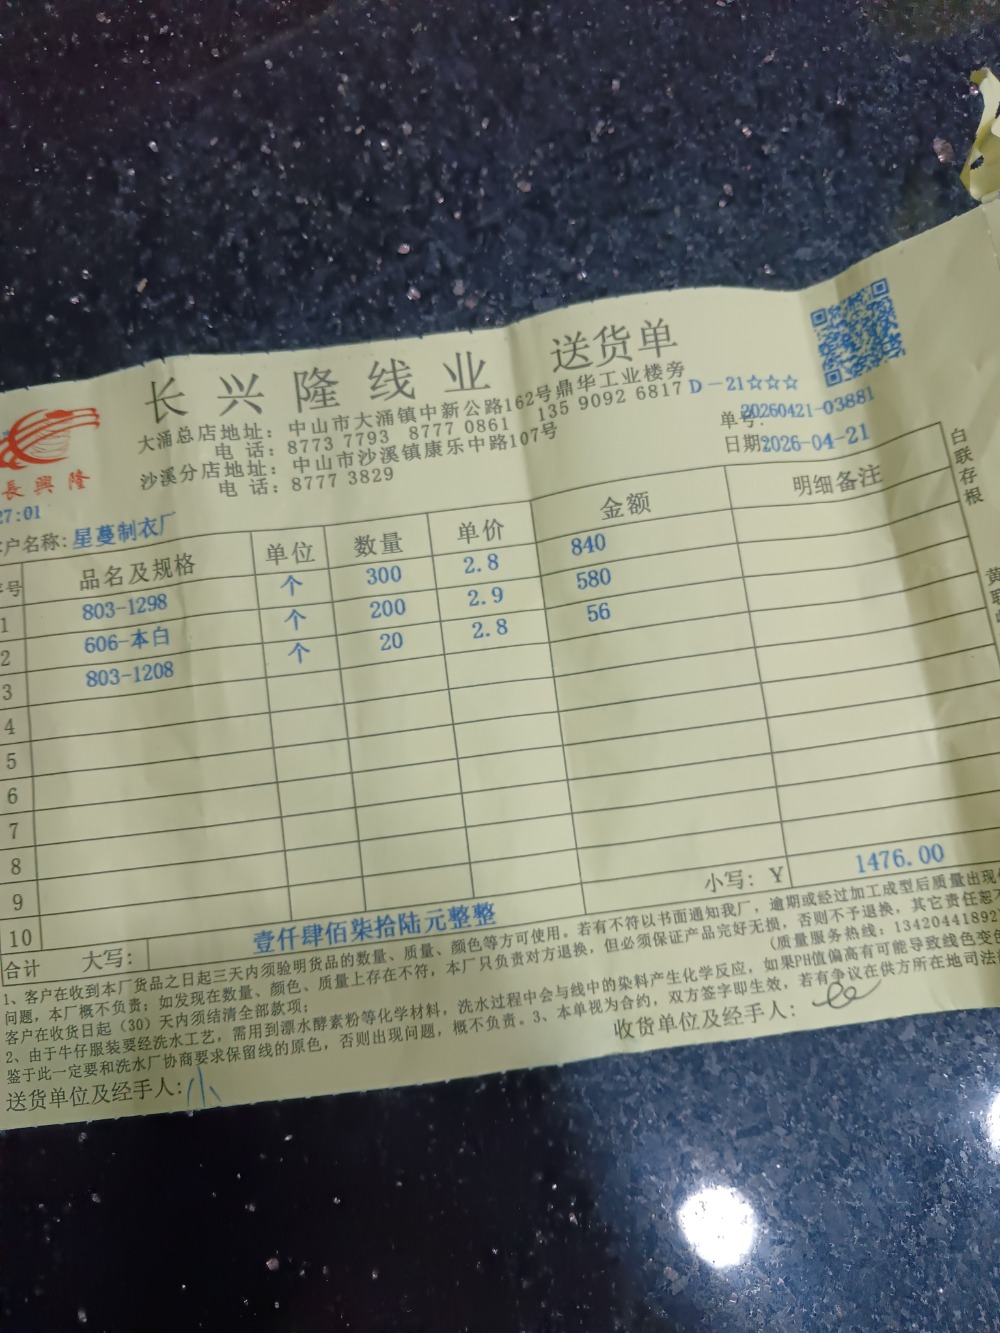 长兴隆线业 送货单
大涌总店地址：中山市大涌镇中新公路162号鼎华工业楼旁
电 话：8773 7793 8777 0861 135 9092 6817
沙溪分店地址：中山市沙溪镇康乐中路107号
电 话：8777 3829
D-21☆☆☆
单号：20260421-03881
日期2026-04-21
長興隆
27:01
户名称：星蔓制衣厂
号 品名及规格 单位 数量 单价 金额 明细备注
1 803-1298 个 300 2.8 840
2 606-本白 个 200 2.9 580
3 803-1208 个 20 2.8 56
4
5
6
7
8
9
10
合计 大写：壹仟肆佰柒拾陆元整整 小写：￥ 1476.00
1、客户在收到本厂货品之日起三天内须验明货品的数量、质量、颜色等方可使用。若有不符以书面通知我厂，逾期或经过加工成型后质量出现
问题，本厂概不负责；如发现在数量、颜色、质量上存在不符，本厂只负责对方退换，但必须保证产品完好无损，否则不予退换，其它责任恕不
客户在收货日起（30）天内须结清全部款项； （质量服务热线：13420441892
2、由于牛仔服装要经洗水工艺，需用到漂水酵素粉等化学材料，洗水过程中会与线中的染料产生化学反应，如果PH值偏高有可能导致线色变色
鉴于此一定要和洗水厂协商要求保留线的原色，否则出现问题，概不负责。3、本单视为合约，双方签字即生效，若有争议在供方所在地司法
送货单位及经手人：小 收货单位及经手人：
白联存根
黄联